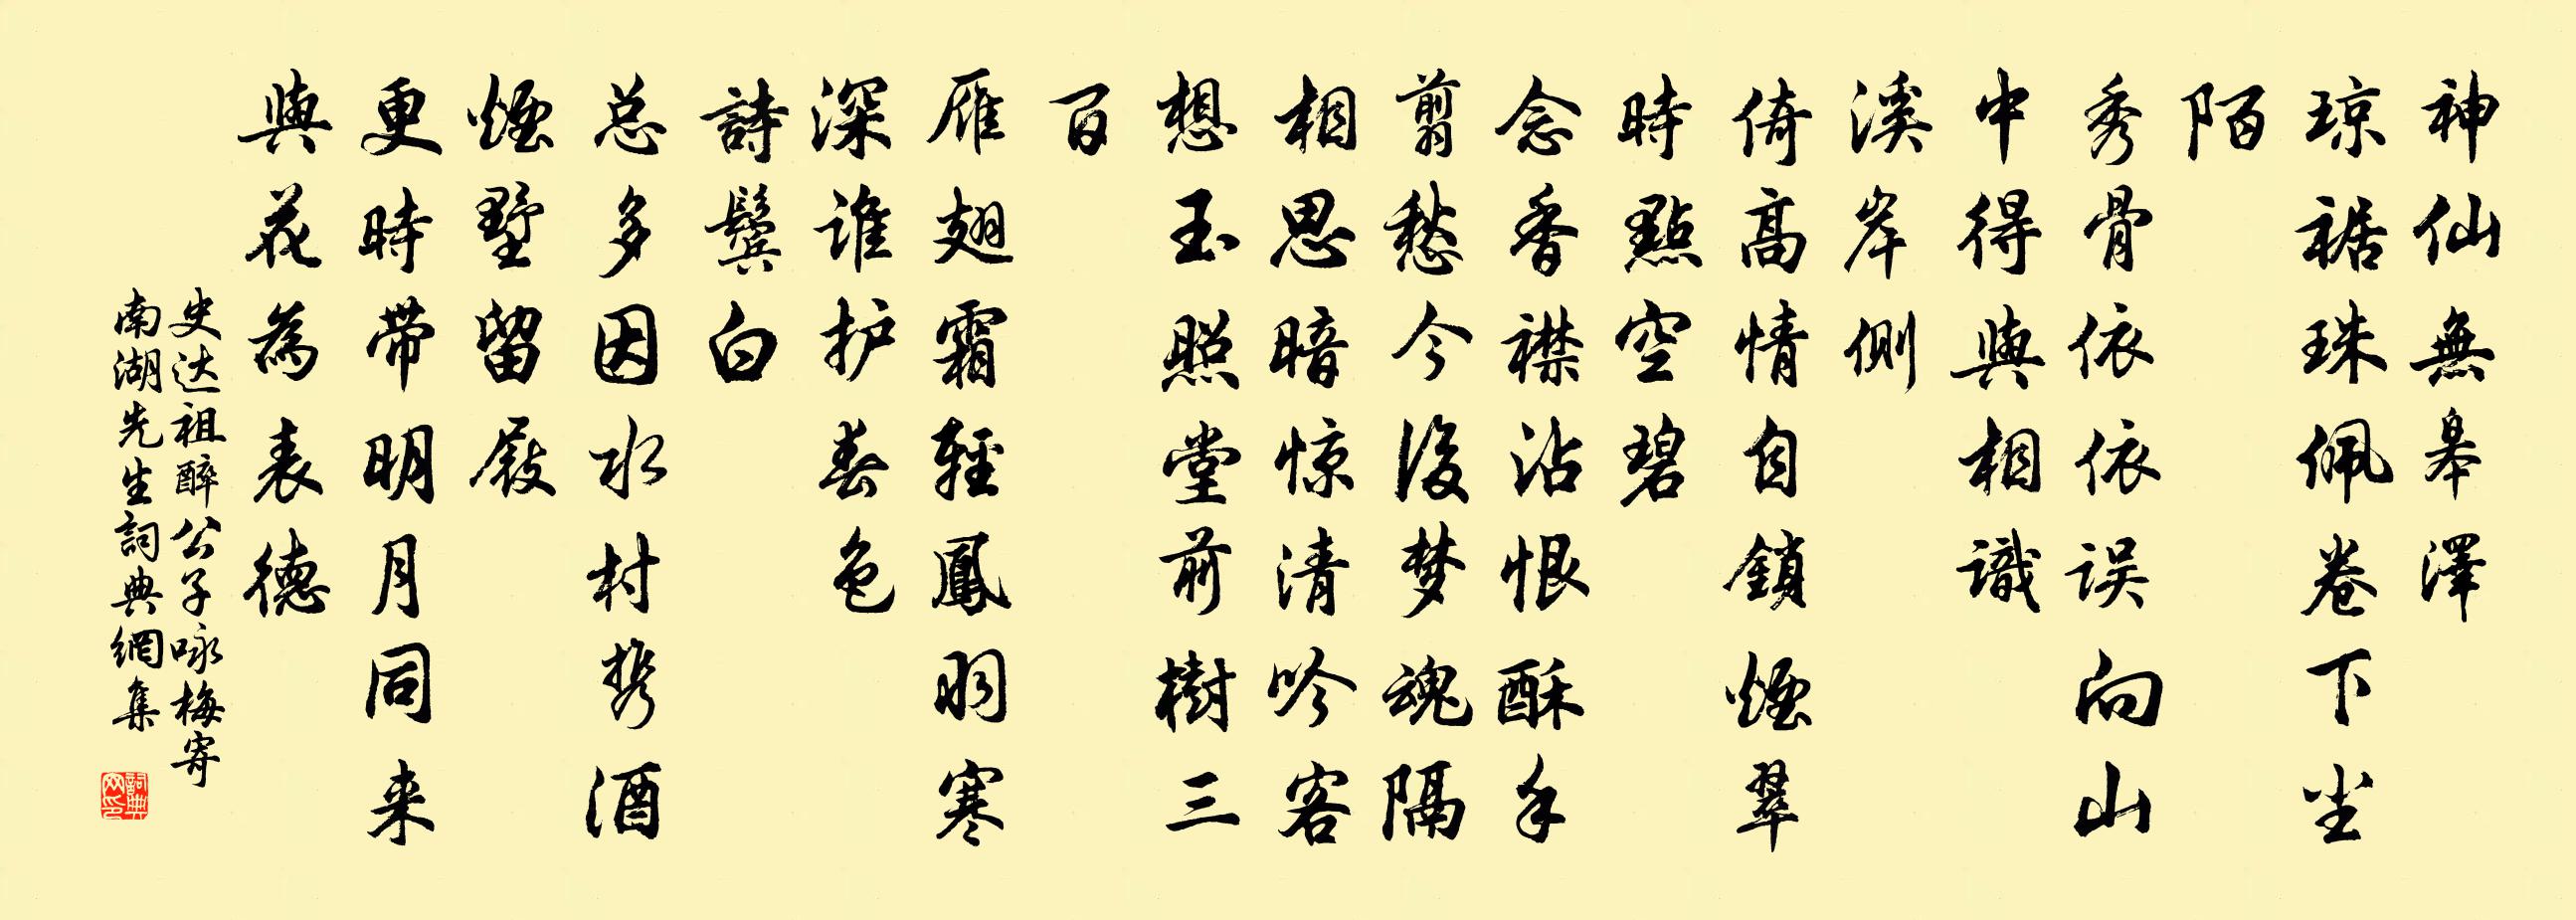 神仙無皋澤
琼裾珠佩卷下尘
陌
秀骨依依误向山
中得與相識
溪岸側
倚高情自鎖煙翠
時點空碧
念香襟沾恨酥手
剪愁今後梦魂隔
相思暗惊清吟客
想玉照堂前樹三
百
雁翅霜輕鳳羽寒
深谁护春色
詩鬓白
总多因水村携酒
煙墅留屐
更時带明月同来
與花為表德
史达祖醉公子咏梅寄
南湖先生詞典網集
詞典网印